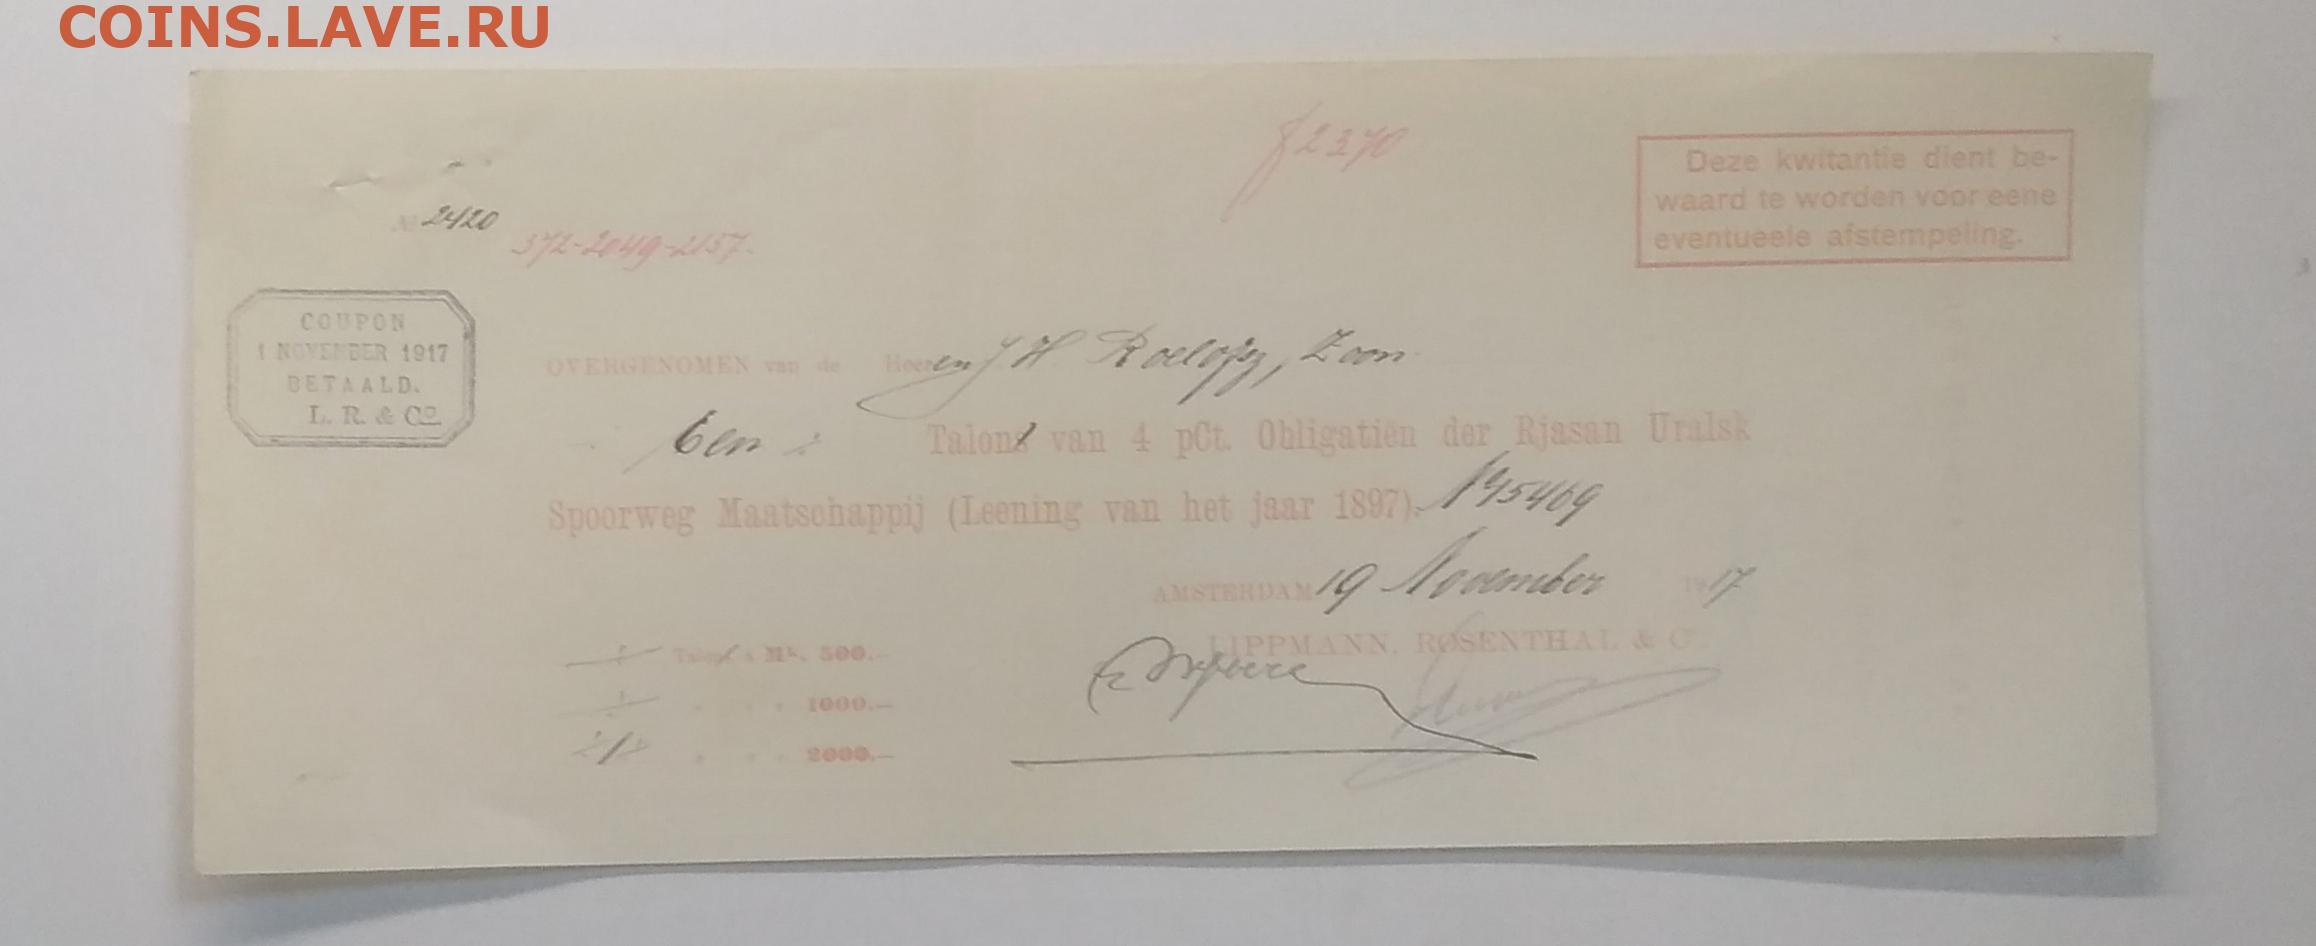 COINS.LAVE.RU
f 2370
Deze kwitantie dient be-
waard te worden voor eene
eventueele afstempeling.
№ 2420
372-2049-2157.
COUPON
1 NOVEMBER 1917
BETAALD.
L. R. & Co.
OVERGENOMEN van de Heeren J. H. Zoon
Een Talon van 4 pCt. Obligatiën der Rjasan Uralsk
Spoorweg Maatschappij (Leening van het jaar 1897). 145469
AMSTERDAM 19 November 1917
LIPPMANN, ROSENTHAL & Co.
Talon à Mk. 500.-
1000.-
1 2000.-